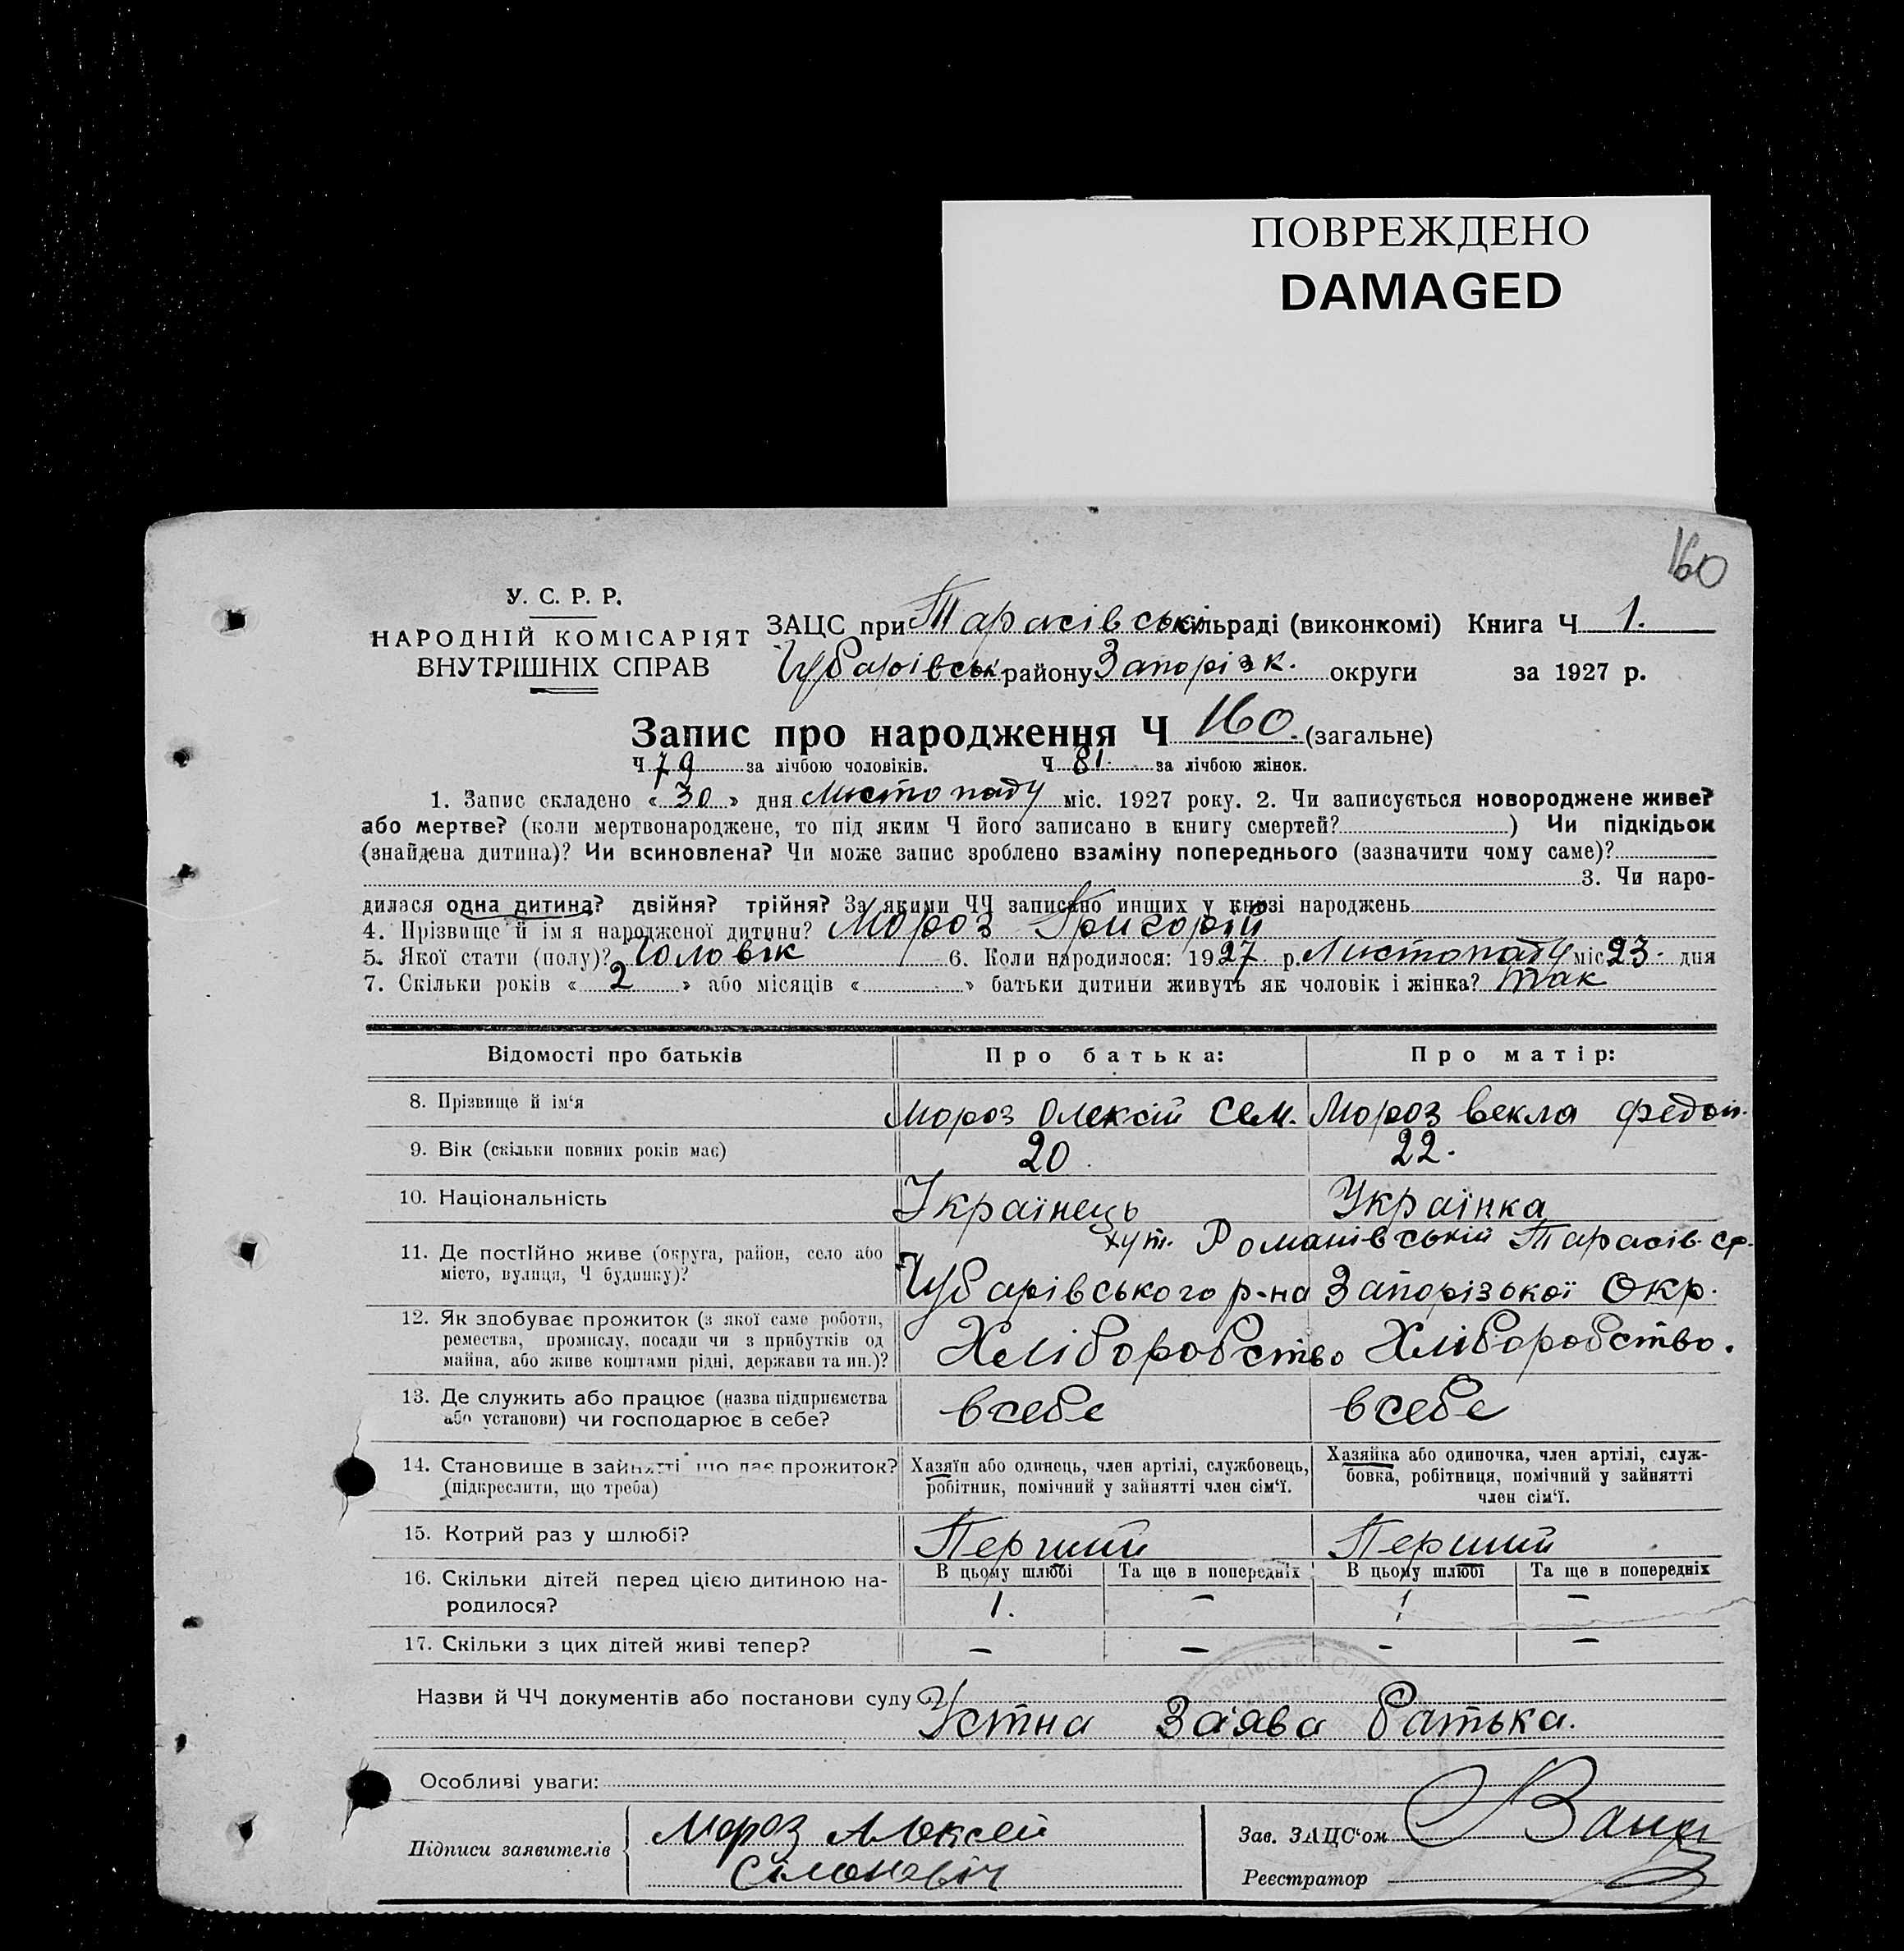 ПОВРЕЖДЕНО
DAMAGED
160
У. С. Р. Р.
НАРОДНІЙ КОМІСАРІЯТ
ВНУТРІШНІХ СПРАВ
ЗАЦС при Тарасівській сільраді (виконкомі) Книга Ч 1.
Чубарівськ району Запорізк. округи за 1927 р.
Запис про народження Ч 160. (загальне)
Ч 79 за лічбою чоловіків. Ч 81. за лічбою жінок.
1. Запис складено « 30 » дня Листопаду міс. 1927 року. 2. Чи записується новороджене живе?
або мертве? (коли мертвонароджене, то під яким Ч його записано в книгу смертей? ) Чи підкідьок
(знайдена дитина)? Чи всиновлена? Чи може запис зроблено взаміну попереднього (зазначити чому саме)?
3. Чи наро-
дилася одна дитина? двійня? трійня? За якими ЧЧ записано инших у книзі народжень
4. Прізвище й ім я народженої дитини? Мороз Григорій
5. Якої стати (полу)? Чоловік 6. Коли народилося: 1927 р. Листопаду міс 23. дня
7. Скільки років « 2 » або місяців « » батьки дитини живуть як чоловік і жінка? так
Відомості про батьків Про батька: Про матір:
8. Прізвище й ім'я Мороз Олексій Сем. Мороз Векла Федот.
9. Вік (скільки повних років має) 20. 22.
10. Національність Українець Українка
11. Де постійно живе (округа, район, село або місто, вулиця, Ч будинку)? хут. Романівській Тарасів. ср.
Чубарівського р-на Запорізької Окр.
12. Як здобуває прожиток (з якої саме роботи,
ремества, промислу, посади чи з прибутків од
майна, або живе коштами рідні, держави та ин.)? Хліборобство Хліборобство.
13. Де служить або працює (назва підприємства
або установи) чи господарює в себе? в себе в себе
14. Становище в зайнятті що дає прожиток?
(підкреслити, що треба)
Хазяїн або одинець, член артілі, службовець,
робітник, помічний у зайнятті член сім'ї.
Хазяйка або одиночка, член артілі, служ-
бовка, робітниця, помічний у зайнятті
член сім'ї.
15. Котрий раз у шлюбі? Перший Перший
16. Скільки дітей перед цією дитиною на-
родилося?
В цьому шлюбі Та ще в попередніх В цьому шлюбі Та ще в попередніх
1. — 1 —
17. Скільки з цих дітей живі тепер? — — - —
Назви й ЧЧ документів або постанови суду Устна Заява батька.
Особливі уваги:
Підписи заявителів Мороз Алексей
Сімоновіч
Зав. ЗАЦС'ом
Реєстратор